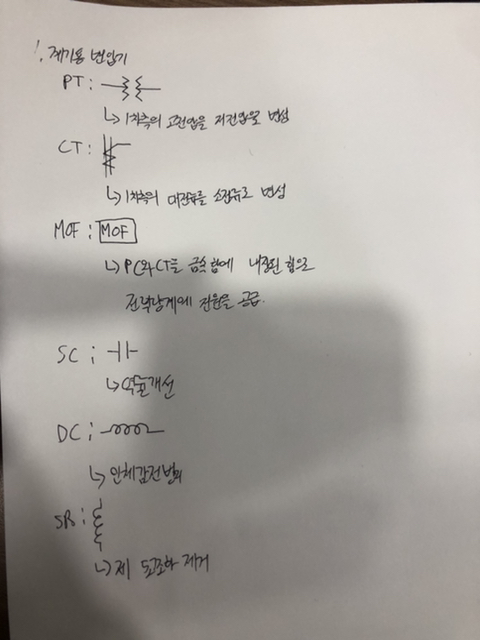 1. 계기용 변압기
PT :
↳ 1차측의 고전압을 저전압으로 변성
CT :
↳ 1차측의 대전류를 소전류로 변성
MOF : MOF
↳ PC와 CT를 금속함에 내장된 함으로
전력량계에 전원을 공급.
SC ;
↳ 역률개선
DC ;
↳ 인체감전방지
SR :
↳ 제 5고조파 제거